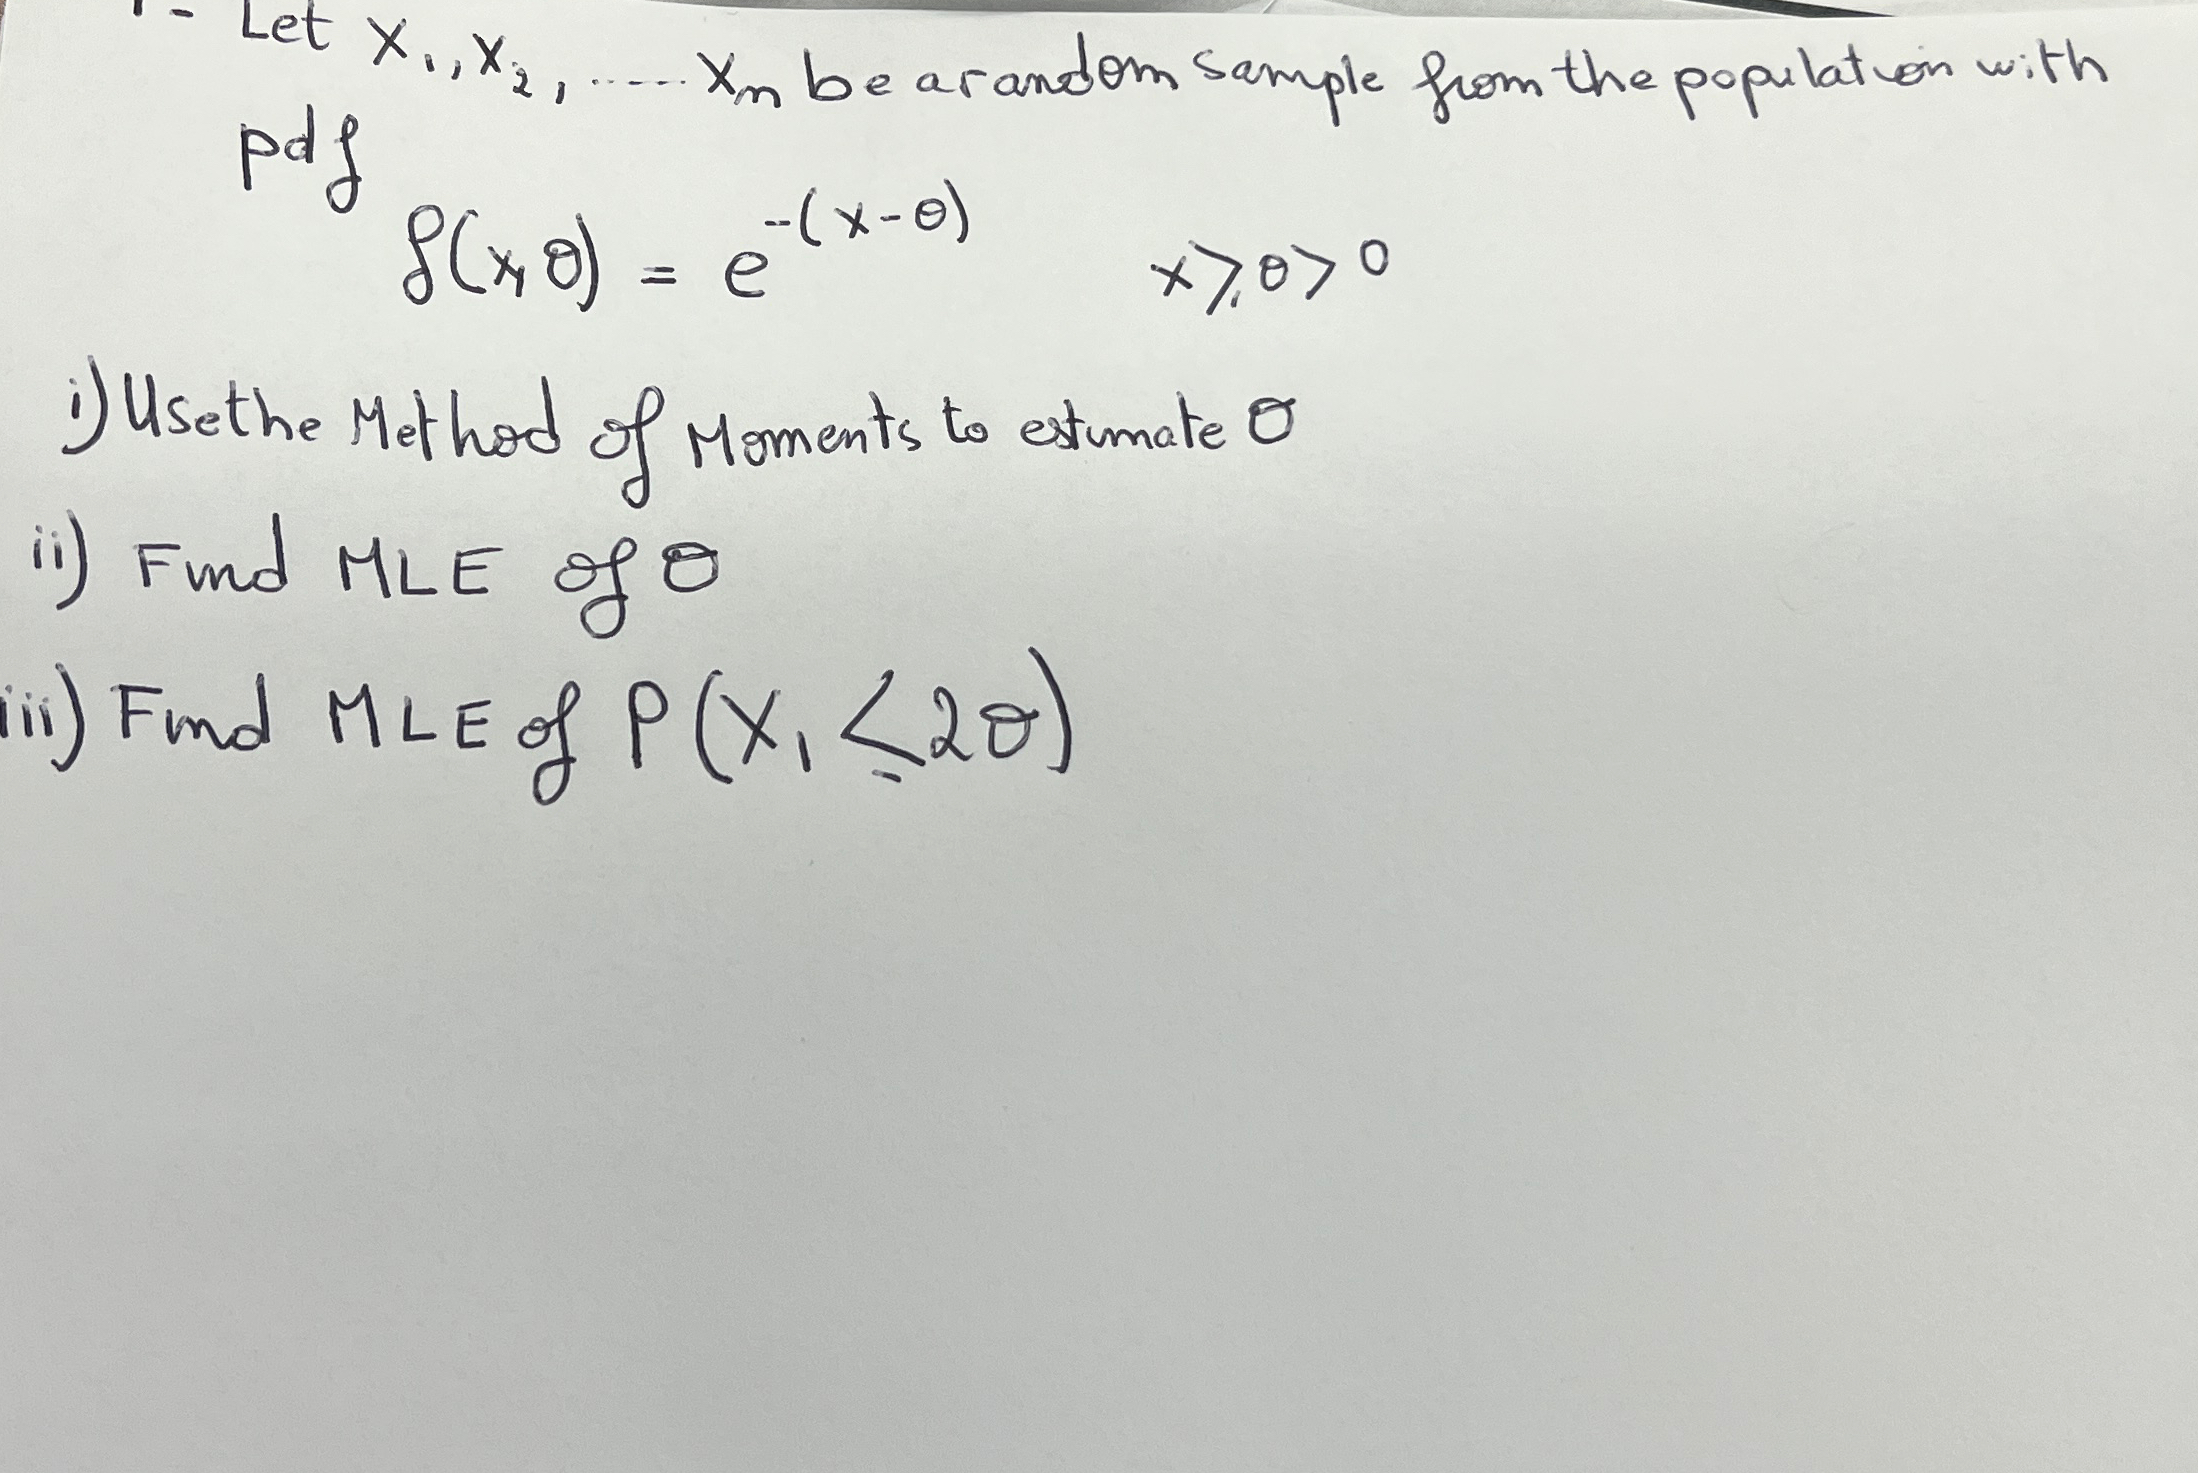 1- Let X₁, X₂, ..... Xₙ be a random sample from the population with
pdf
f(x, θ) = e^-(x-θ)     x ⩾ θ > 0
i) Use the Method of Moments to estimate θ
ii) Find MLE of θ
iii) Find MLE of P(X₁ ≤ 2θ)